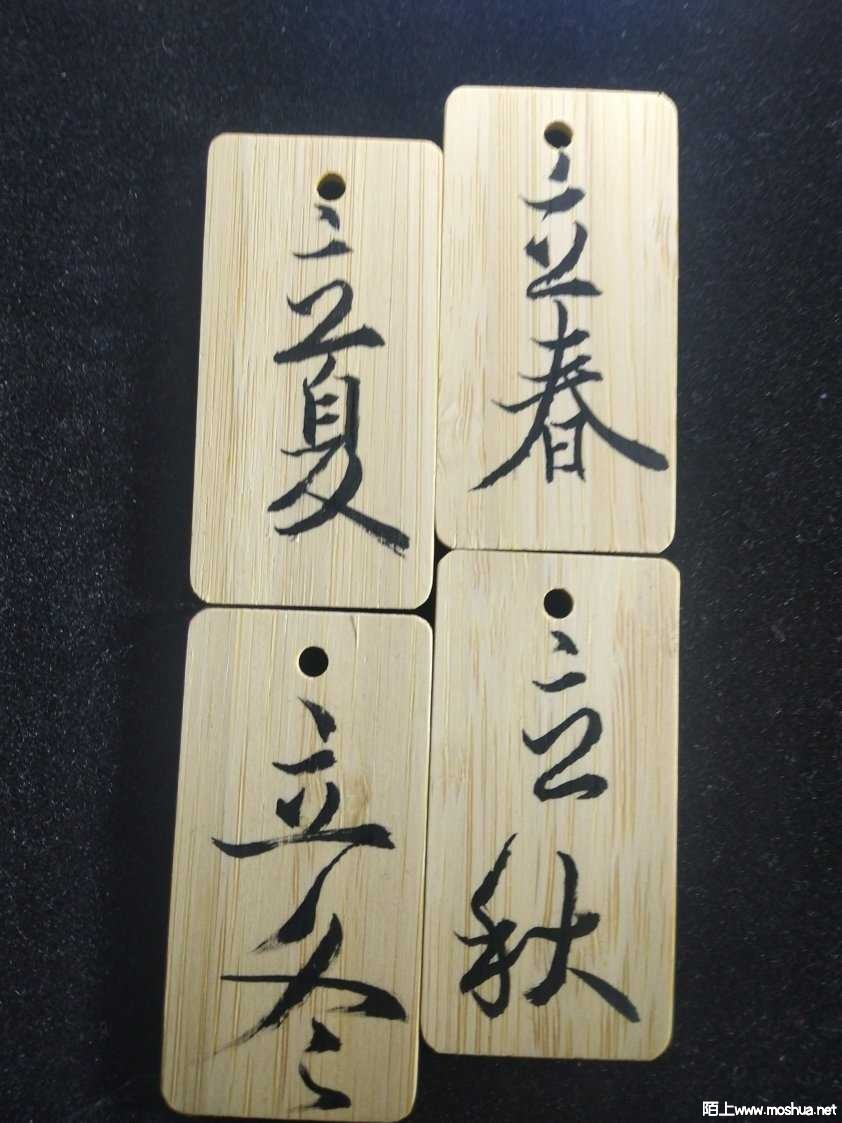 立春
立夏
立秋
立冬
陌上www.moshua.net